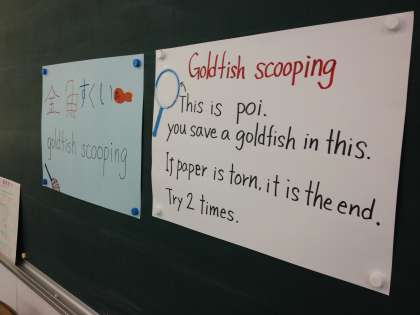 金魚すくい
goldfish scooping
Goldfish scooping
This is poi.
you save a goldfish in this.
If paper is torn, it is the end.
Try 2 times.